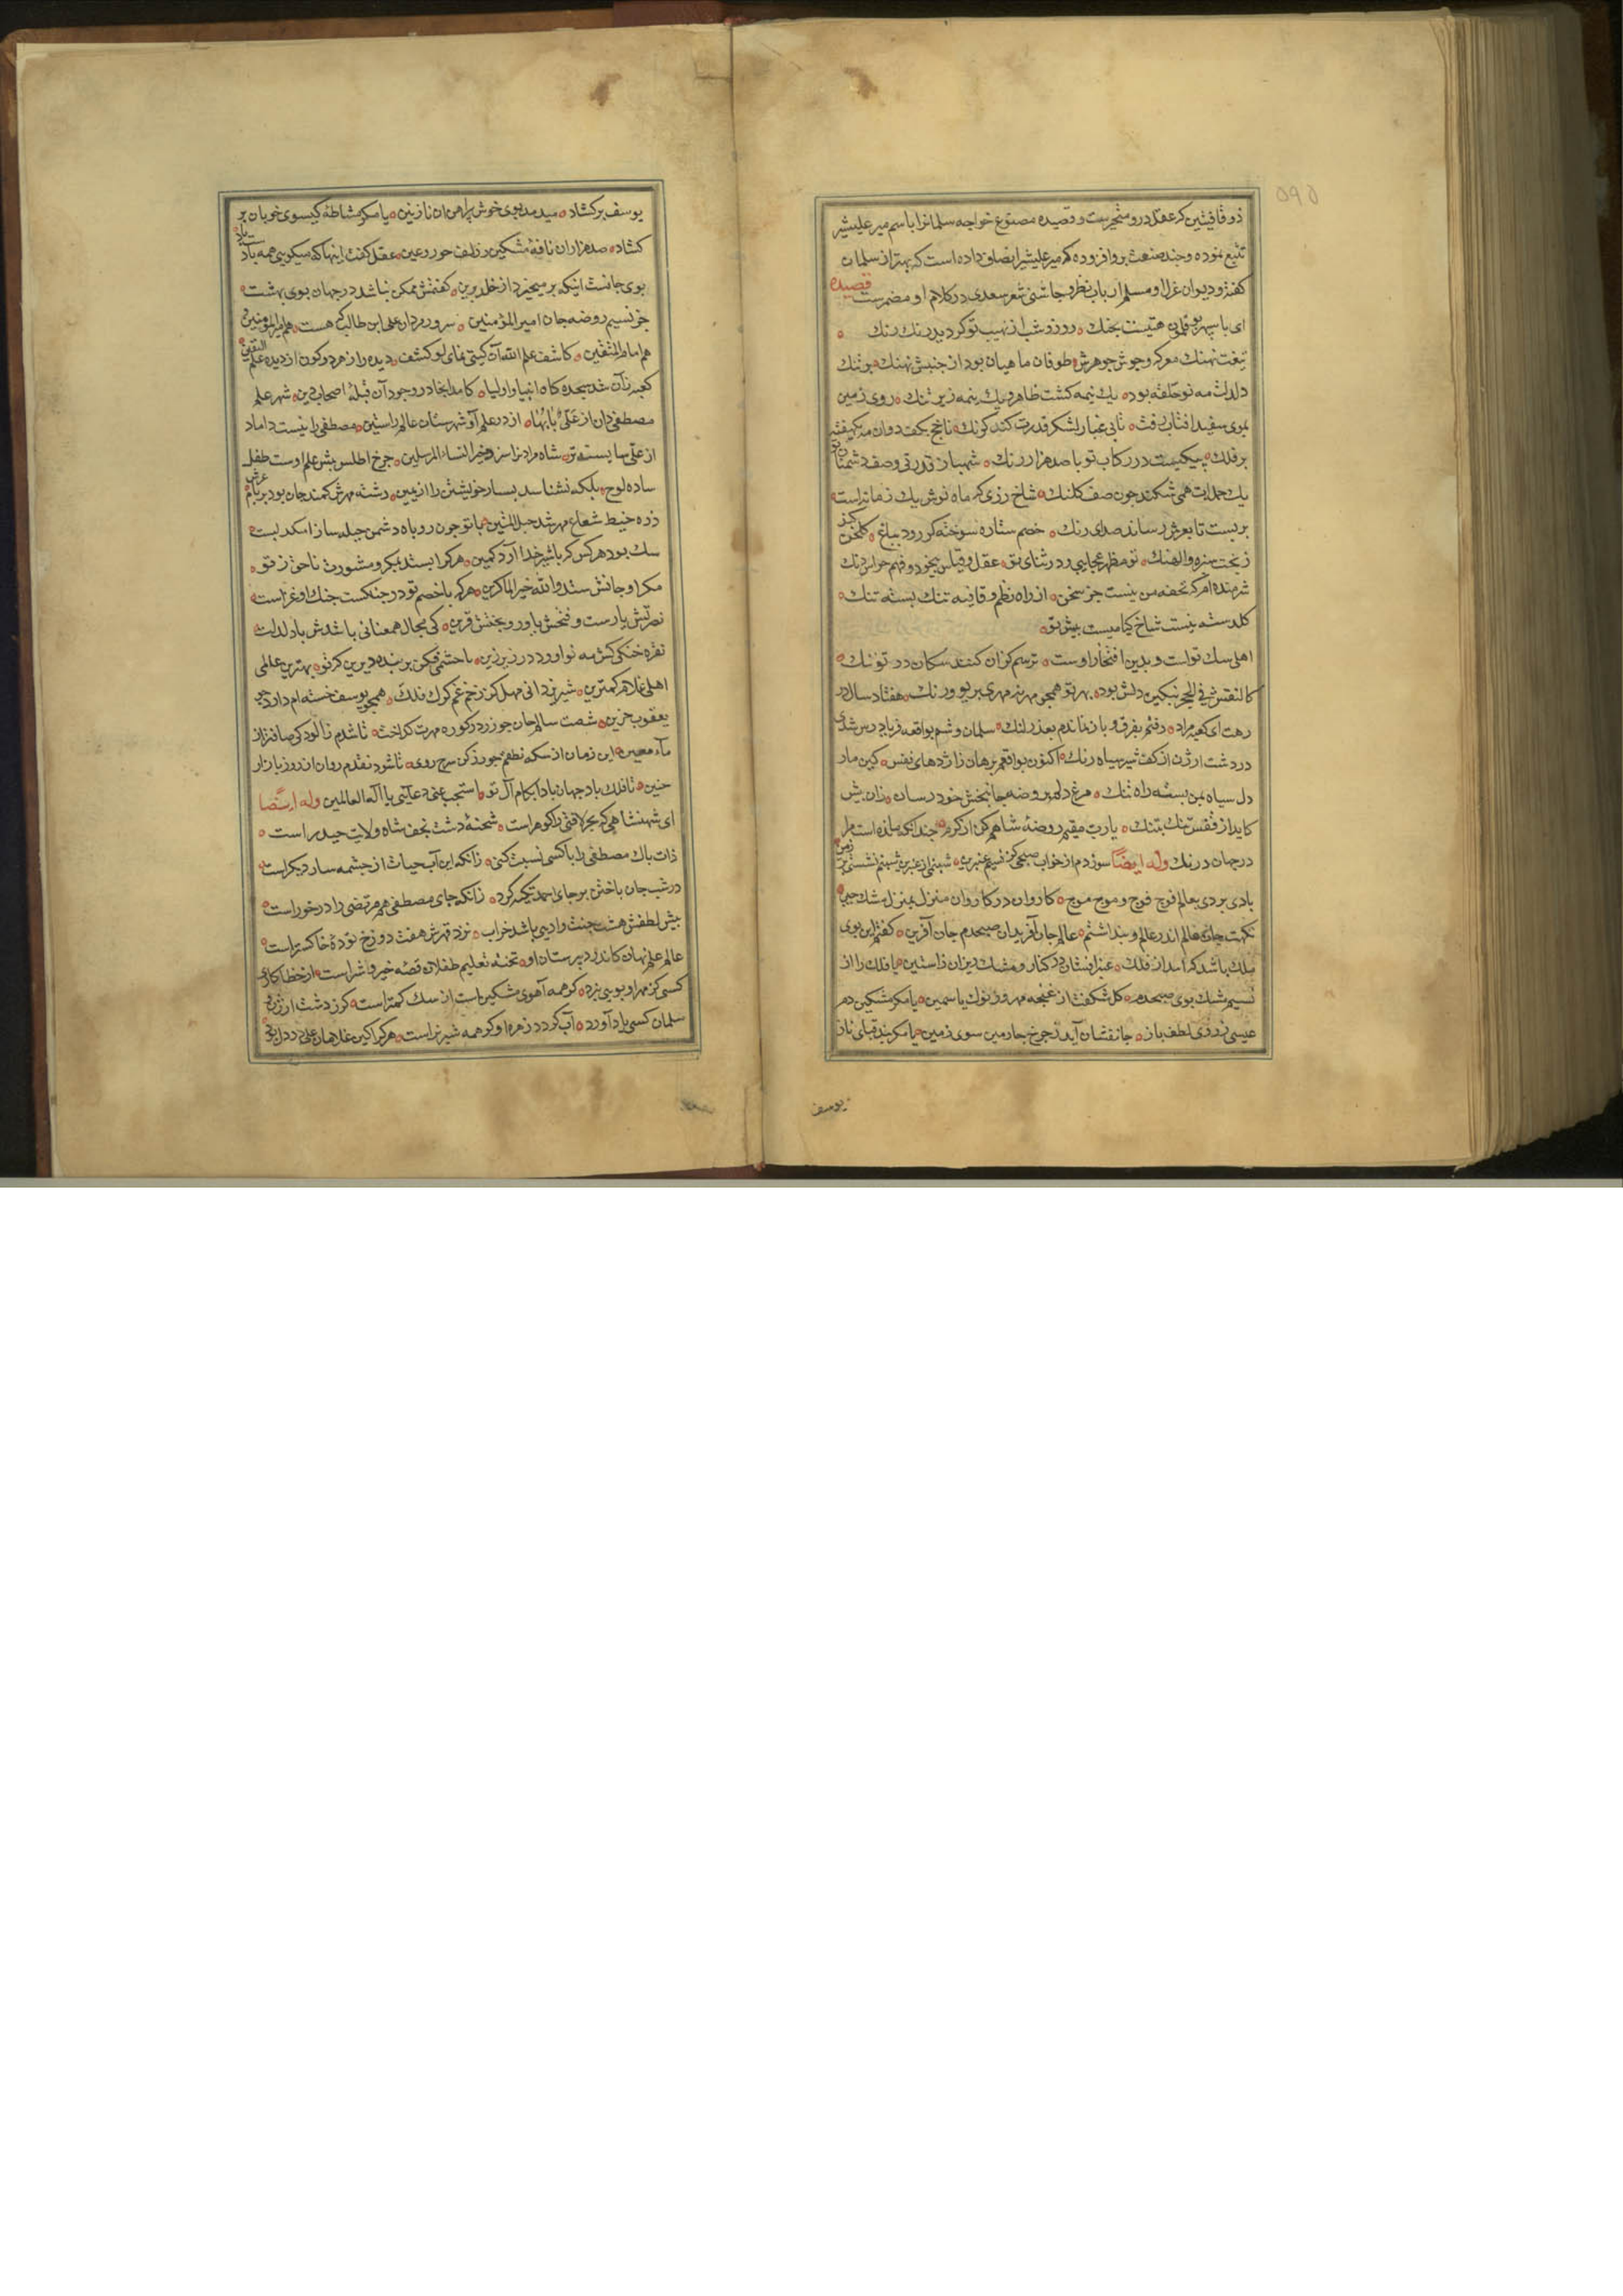 ۵۹۵
ذوقافیتین کرعقل درو متحیرست و قصیده مصنوع خواجه سلمانرا باسم میرعلیشیر
تتبع نموده و چند صنعت برو افزوده که میرعلیشیر انصاف داده است که بهتر از سلمان
کفته و دیوان غزل او مسلم ارباب نظر و چاشنی شعر سعدی در کلام او مضمرست قصیده
ای با سپهر بوقلمون هیبتت بجنک روز و شب از نهیب تو کردید رنک رنک
تیغت نهنک معرکه و جوش جوهرش طوفان ماهیان بود از جنبش نهنک بر تنک
دلدلت مه نو حلقه بود یک نیمه کشت ظاهر و یک نیمه زیر تنک روی زمین
بموی سفید افتاب رفت تا بی غبار لشکر قدرت کند کونک تا نجح یکف دوان
بر فلک پیکیست در رکاب تو با صد هزار رنک شهباز قدرتی و صف دشمنان تو
یک حمله‌ات همی شکند چون صف کلنک شاخ رزی که ماه نوش یک زمانه است
بر بست تا بعرش رساند صدای رنک خصم ستاره سوخته کر رود بباغ کلخن کند
ز بخت سبزه والنک تو مظهر عجایبی و در ثنای تو عقل و قیاس بیخود و فهم حواس دنک
شرمنده ام که تحفه من نیست جز سخن از راه نظم و قافیه تنک بسته تنک
کلدسته نیست شاخ کیاهیست پیش تو
اهلی سک تو است و بدین افتخار اوست ترسم کزان کنند سکان در تو ننک
کالنقش فی الحجر بنکین دلش بوده بهر تو همچو مهر نه مهری بریو و رنک هفتاد سال در
رهت ای کعبه مراد رفتم بفرق و باز نماندم بعذر لنک سلمان وشم بواقعه فریادرس شدی
در دشت ارژن از کف شیر سیاه رنک اکنون بواقعم برهان ز اژدهای نفس کین مار
دل سیاه بمن بسته راه تنک مرغ دلم بروضه جانبخش خود رسان زان پیش
کاید از قفس تنک بتنک یارب مقیم روضه شاهم کن از کرم چندانکه مانده است مرا
در جهان درنک وله ایضا سوزدم از خواب صبحی کز نسیم عنبرین شبنم از عنبرین شبنم نشستی بر زمین
بادی بر دی بعالم فوج فوج و موج موج کاروان در کاروان منزل بمنزل مشک چین
نکهت جان عالم اندر عالم و پنداشتم عالم جان آفریدان صبحدم جان آفرین کفتم این بوی
ملک باشد که امد از فلک عنبر افشان در کنار و مشک ریزان ز استین یا فلک را از
نسیم مشک بوی صبحدم کل شکفت از غنچه مهر و ز نوک یاسمین یا مکر مشکین دم
عیسی ز روی لطف باز جانفشان آید ز چرخ چارمین سوی زمین یا مکر بند قبای ناز
یوسف
یوسف برکشاد میدمد بوی خوش پیراهن ان نازنین یا مکر مشاطه کیسوی خوبان بر باد
کشاد صد هزاران نافه مشکین ز زلف حور و عین عقل کفت اینها که میکویی همه باد
بوی جانست اینکه بر میخیزد از خلد برین کفتمش ممکن نباشد در جهان بوی بهشت
جز نسیم روضه جان امیر المؤمنین سرور مردان علی ابن طالب که هست هم امیر المومنین و
هم امام المتقین کاشف علم الله آن کیتی نمای لو کشف دیده راز هر دو کون از دیده علم الیقین
کعبه زآن شد سجده کاه انبیا و اولیا کامد ایجاد در وجود آن قبله اصحاب دین شهر علم
مصطفی دان از علی بابها از در علم آ و شهرستان عالم راستین مصطفی را نیست داماد
از علی شایسته تر شاه مردان را سزد خیر النساء المرسلین چرخ اطلس پیش علم اوست طفل
ساده لوح بلکه نشناسد یسار خویشتن را از یمین رشته مهرش کمند جان بود بر بام عرش
ذره خیط شعاع مهر شد حبل المتین با تو چون روباه دشمن حیله ساز امکد لیست
سک بود هرکس که با شیر خدا آرد کمین هرکرا ایستد بمکر و مشورت ناحق ز تو
مکر او جانش ستد والله خیر الماکرین هرکه با خصم تو در جنکست جنک او غزاست
نصرتش یارست و فتحش یاور و بختش قرین کی مجال همعنانی باشدش با دلدلت
نقره خنکی کش مه نو اورد در زیر زین با حشمی فکن بر بنده دیرین که تو بهترین عالمی
اهلی غلام کمترین شیر یزدانی مهل کز زخم غم کرک فلک همچو یوسف خسته ام دارد چو
یعقوب حزین شصت سالم جان چو زر در کوره مهرت کداخت تا شدم ز آلودکی صافتر از
ماء معین این زمان از سکه نطعم چو زر کن سرخ روی تا شود نقدم روان از روز بازار
حنین تا فلک باد جهان بادا بکام آل تو استجب عنی دعائی یا اله العالمین وله ایضا
ای شهنشاهی که بحر لافتی را کوهر است شحنه دشت نجف شاه ولایت حیدر است
ذات پاک مصطفی را با کسی نسبت مکن زانکه این آب حیات از چشمه سار دیکر است
در شب جان باختن بر جای احمد تکیه کرد زانکه جای مصطفی هم مرتضی را در خور است
پیش لطفش هشت جنت وادیی باشد خراب نزد قهرش هفت دوزخ توده خاکستر است
عالم علم نهان کاندر دبیرستان او تخته تعلیم طفلان قصه خیر و شر است از خطا کاری
کسی کز مهر او بویی نبرد کر همه آهوی مشکین است از سک کمتر است کر ز دشت ارژن و
سلمان کسی یاد آورد آب کردد زهره او کر همه شیر نر است هر کرا کین غلامان علی در دل بود